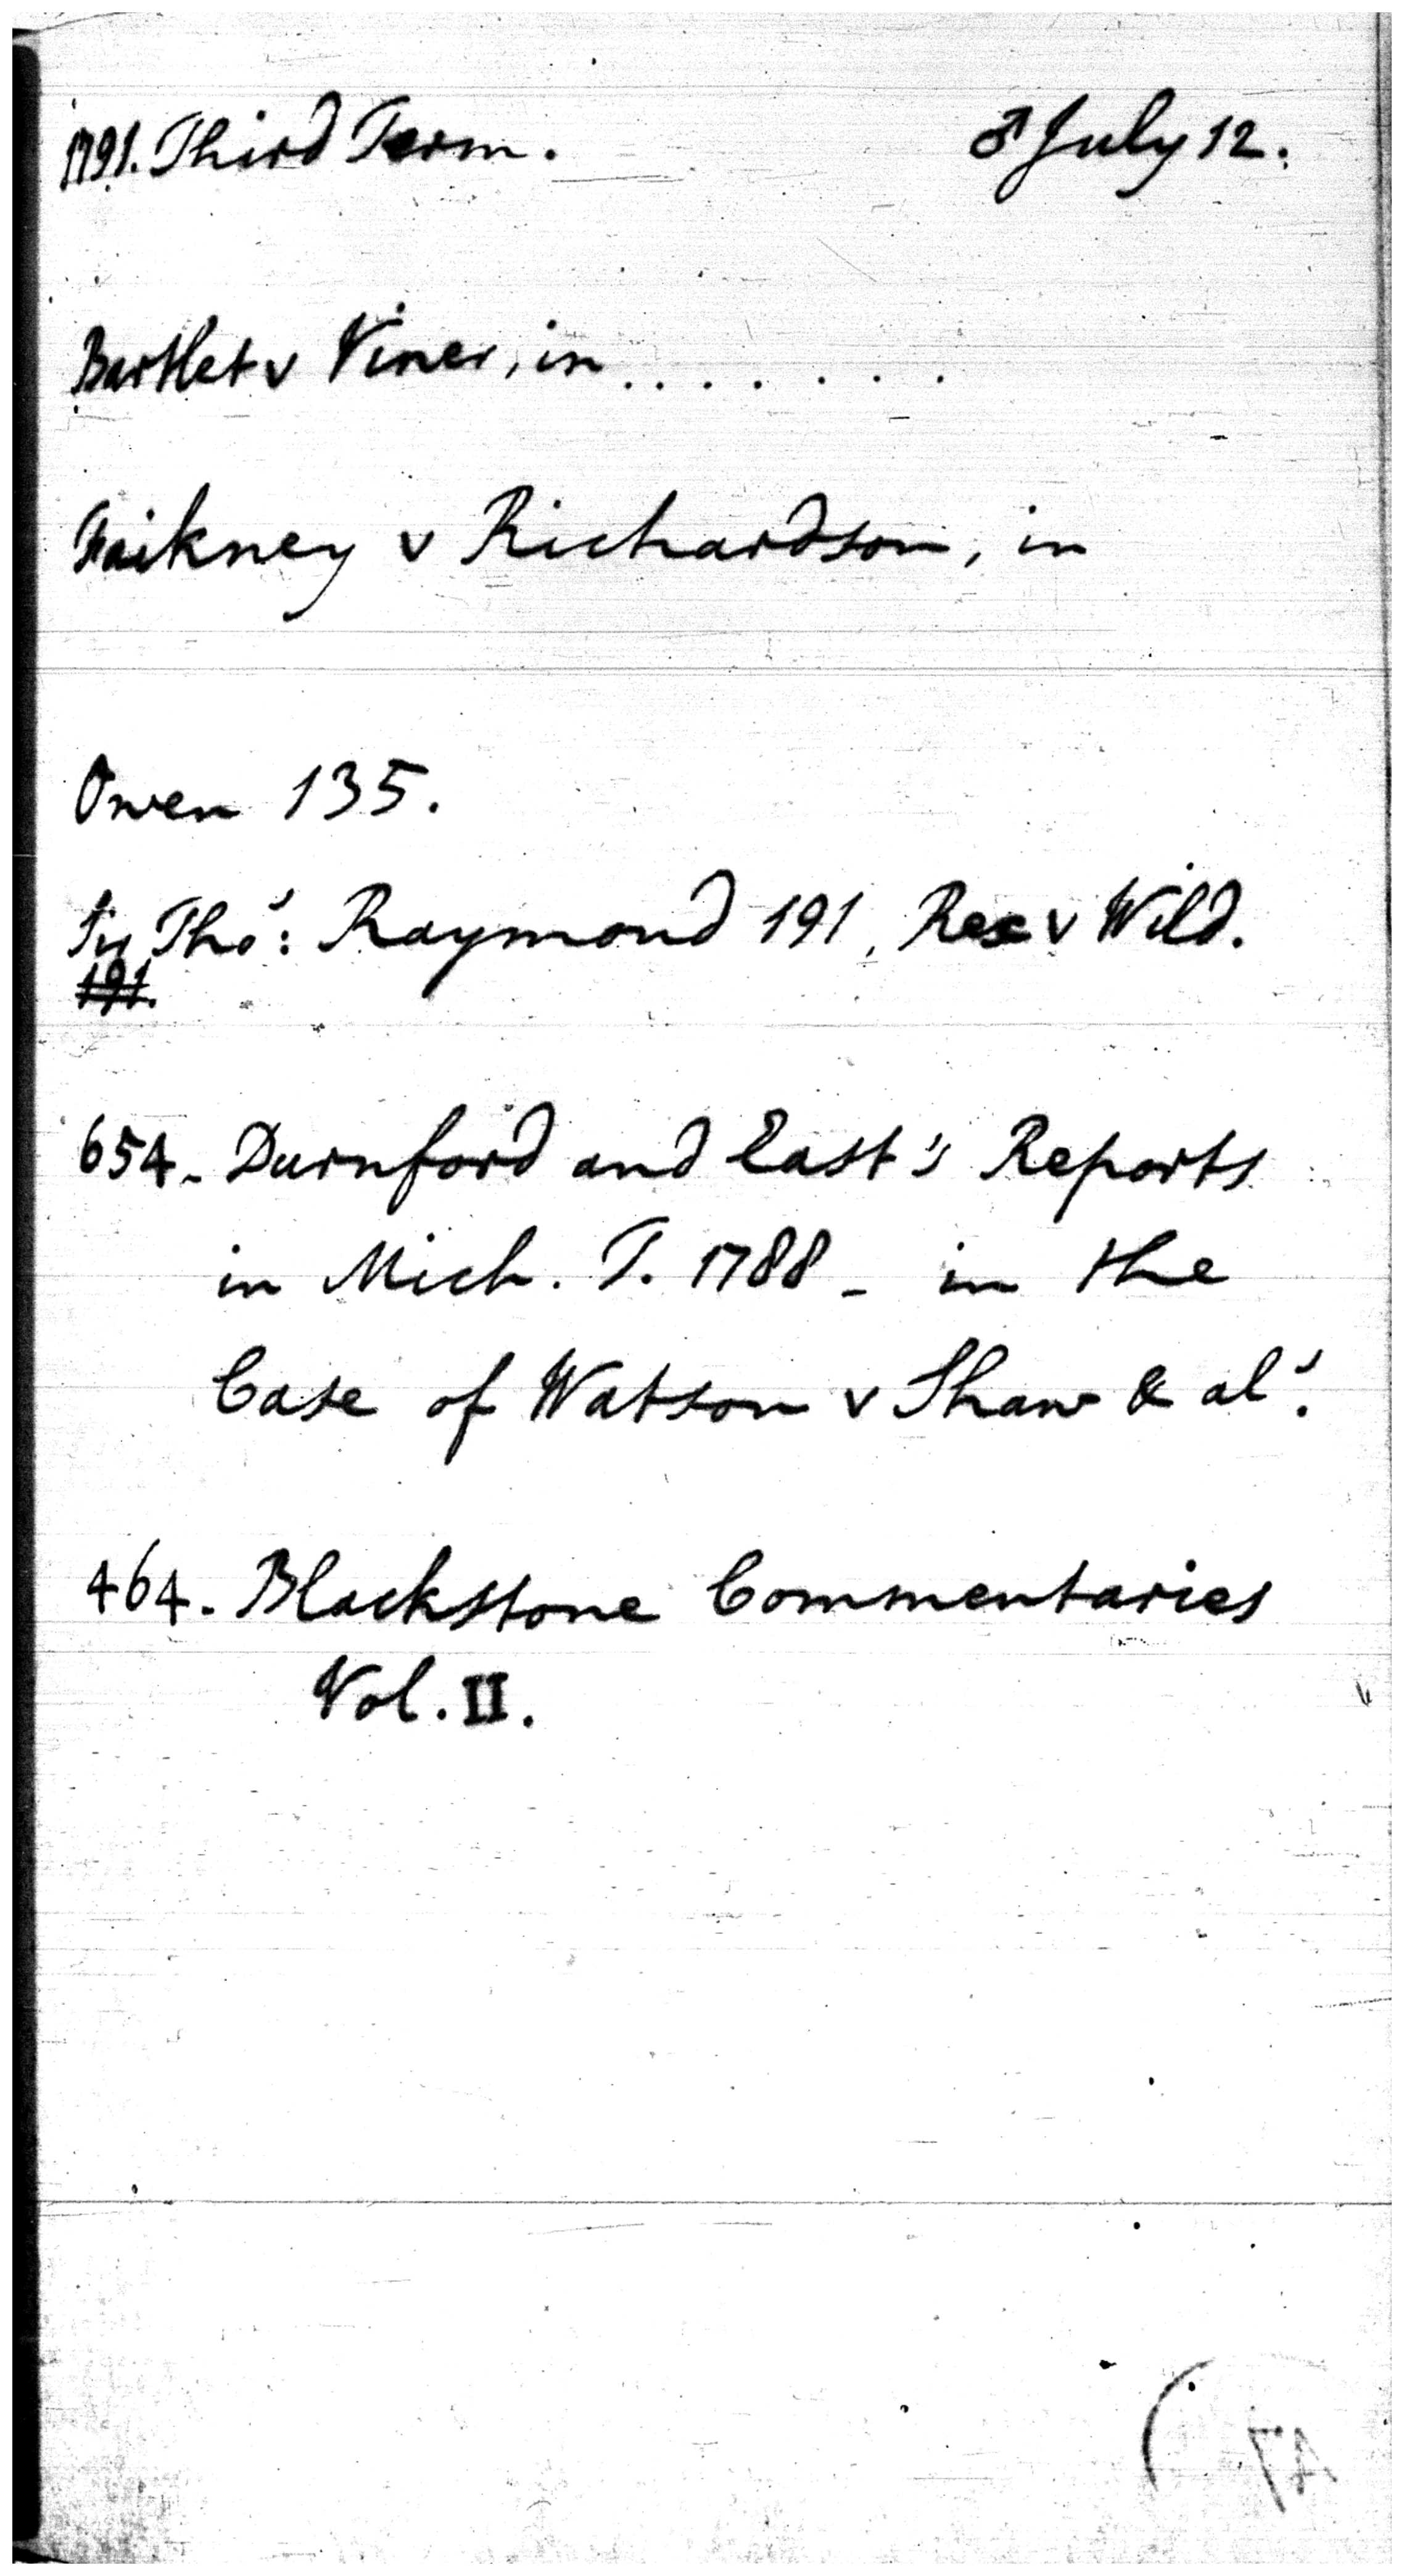 1791. Third Term. ♂ July 12.
Bartlet v Viner, in ........
Faikney v Richardson, in
Owen 135.
Sir Tho.s: Raymond 191, Rex v Wild.
191.
654. Durnford and East's Reports
in Mich. T. 1788 - in the
Case of Watson v Shaw & al.s
464. Blackstone Commentaries
Vol. II.